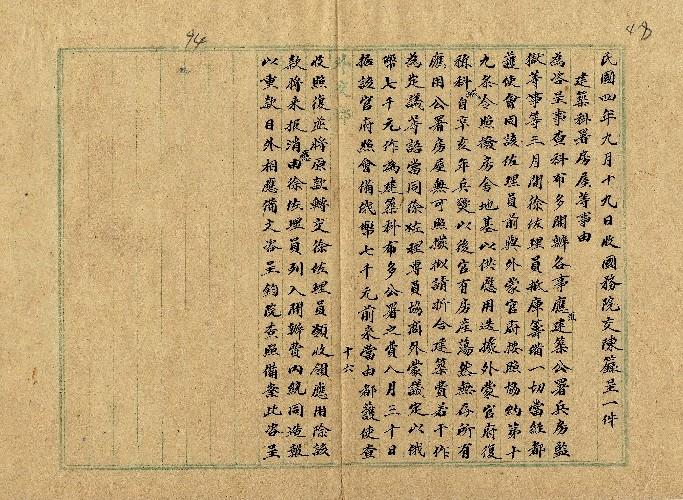 民國四年九月十九日收國務院交陳籙呈一件
建築科署房屋等事由
為咨呈事查科布多開辦各事應建築公署兵房監
獄等事等三月間徐佐理員抵庫籌備一切當經都
護使會同該佐理員前與外蒙官府按照協約第十
九条令照撥房舍地基以供應用迭據外蒙官府復
稱科自辛亥年兵變以後官有房產蕩然無存所有
應用公署房屋無可照撥擬請折合建築費若干作
為定議等語當同徐佐理專員協商外蒙議定以俄
幣七千元作為建築科布多公署之費八月三十日
据該官府照會俻俄幣七千元前來當由都護使查
收照復並將原款轉交徐佐理員領收應用除該
款將來报消由徐佐理員列入開辦費內統同造報
以重款目外相應備文咨呈鈞院查照備案此咨呈
十六
94
48